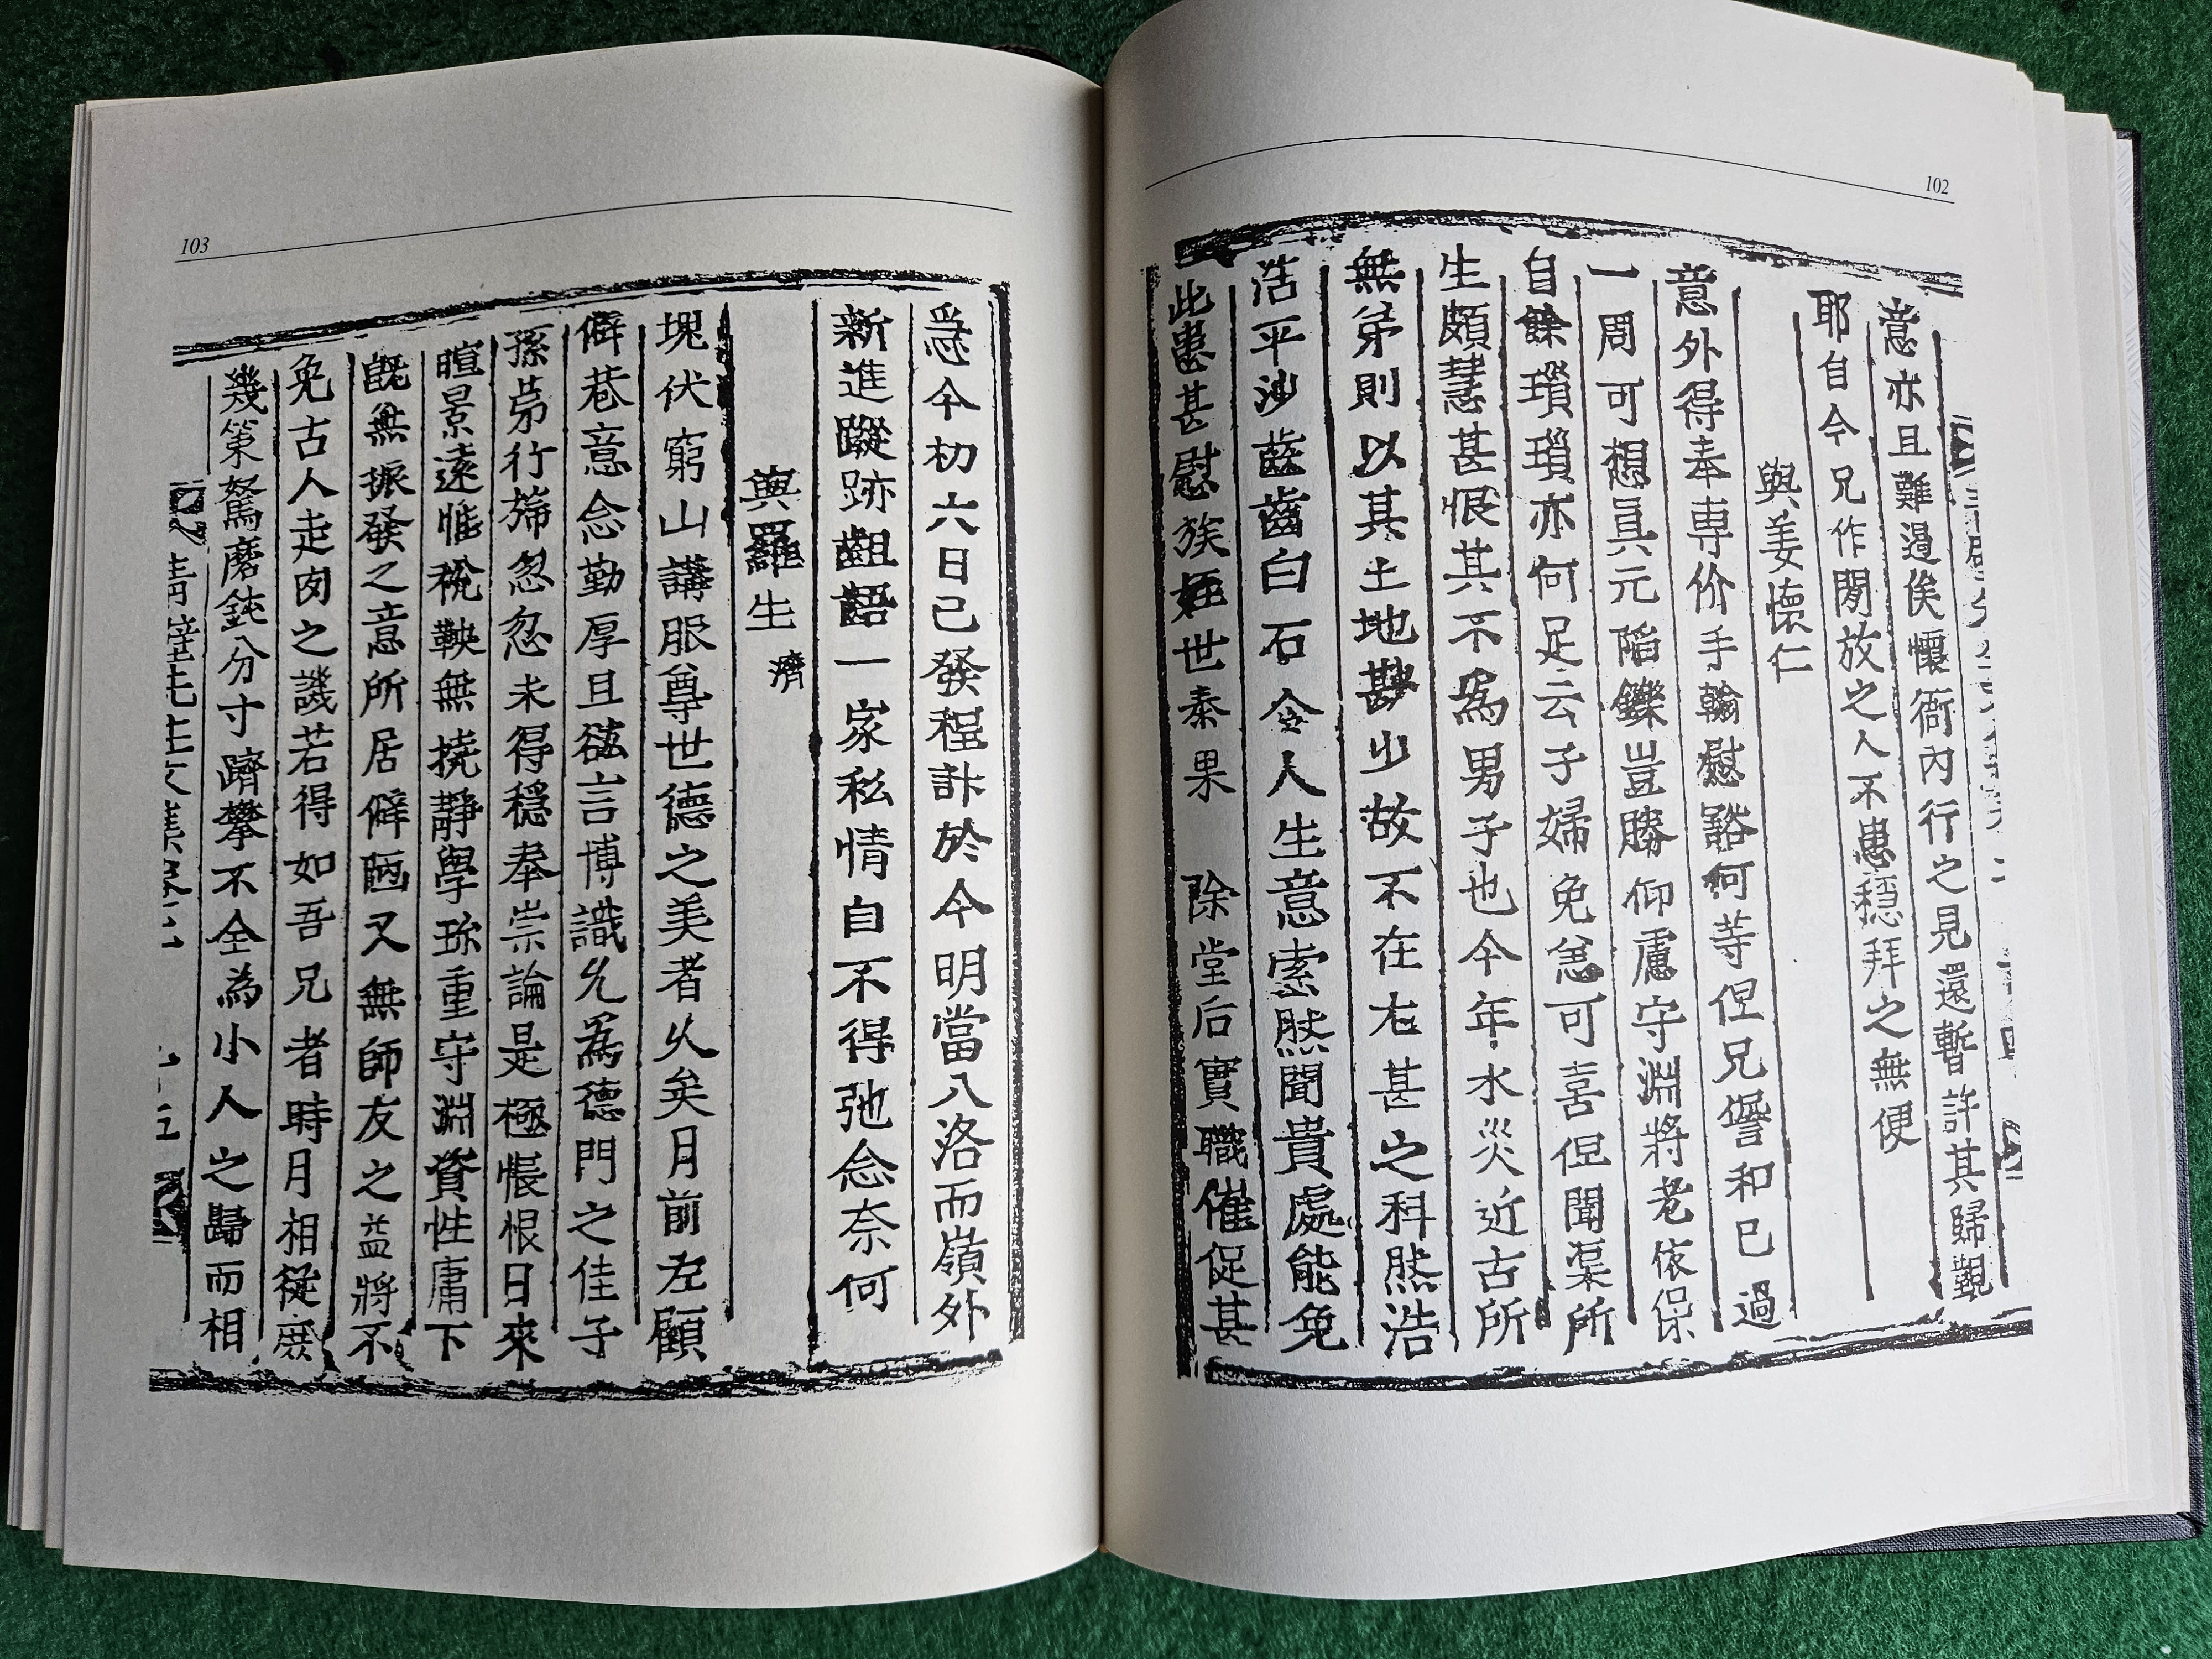 102
意亦且難過俟懷衙內行之見還暫許其歸覲
耶自今兄作閒放之人不患穩拜之無便
與姜懷仁
意外得奉専价手翰慰豁何等但兄儋和已過
一周可想眞元陷鑠豈勝仰慮守淵將老依保
自餘瑣瑣亦何足云子婦免㝃可喜但聞渠所
生頗慧甚恨其不爲男子也今年水災近古所
無弟則以其土地尠少故不在右甚之科然浩
浩平沙齒齒白石令人生意索然聞貴處能免
此患甚慰族姪世泰果除堂后實職催促甚
急今初六日已發程計於今明當入洛而嶺外
新進蹤跡齟齬一家私情自不得弛念奈何
與羅生 濟
塊伏窮山講服尊世德之美者久矣月前左顧
僻巷意念勤厚且聽言博識允爲德門之佳子
孫弟行旆忽忽未得穩奉崇論是極悵恨日來
暄景遠惟稅鞅無撓靜學珍重守淵資性庸下
旣無振發之意所居僻陋又無師友之益將不
免古人走肉之譏若得如吾兄者時月相從庶
幾策駑磨鈍分寸躋攀不全爲小人之歸而相
103